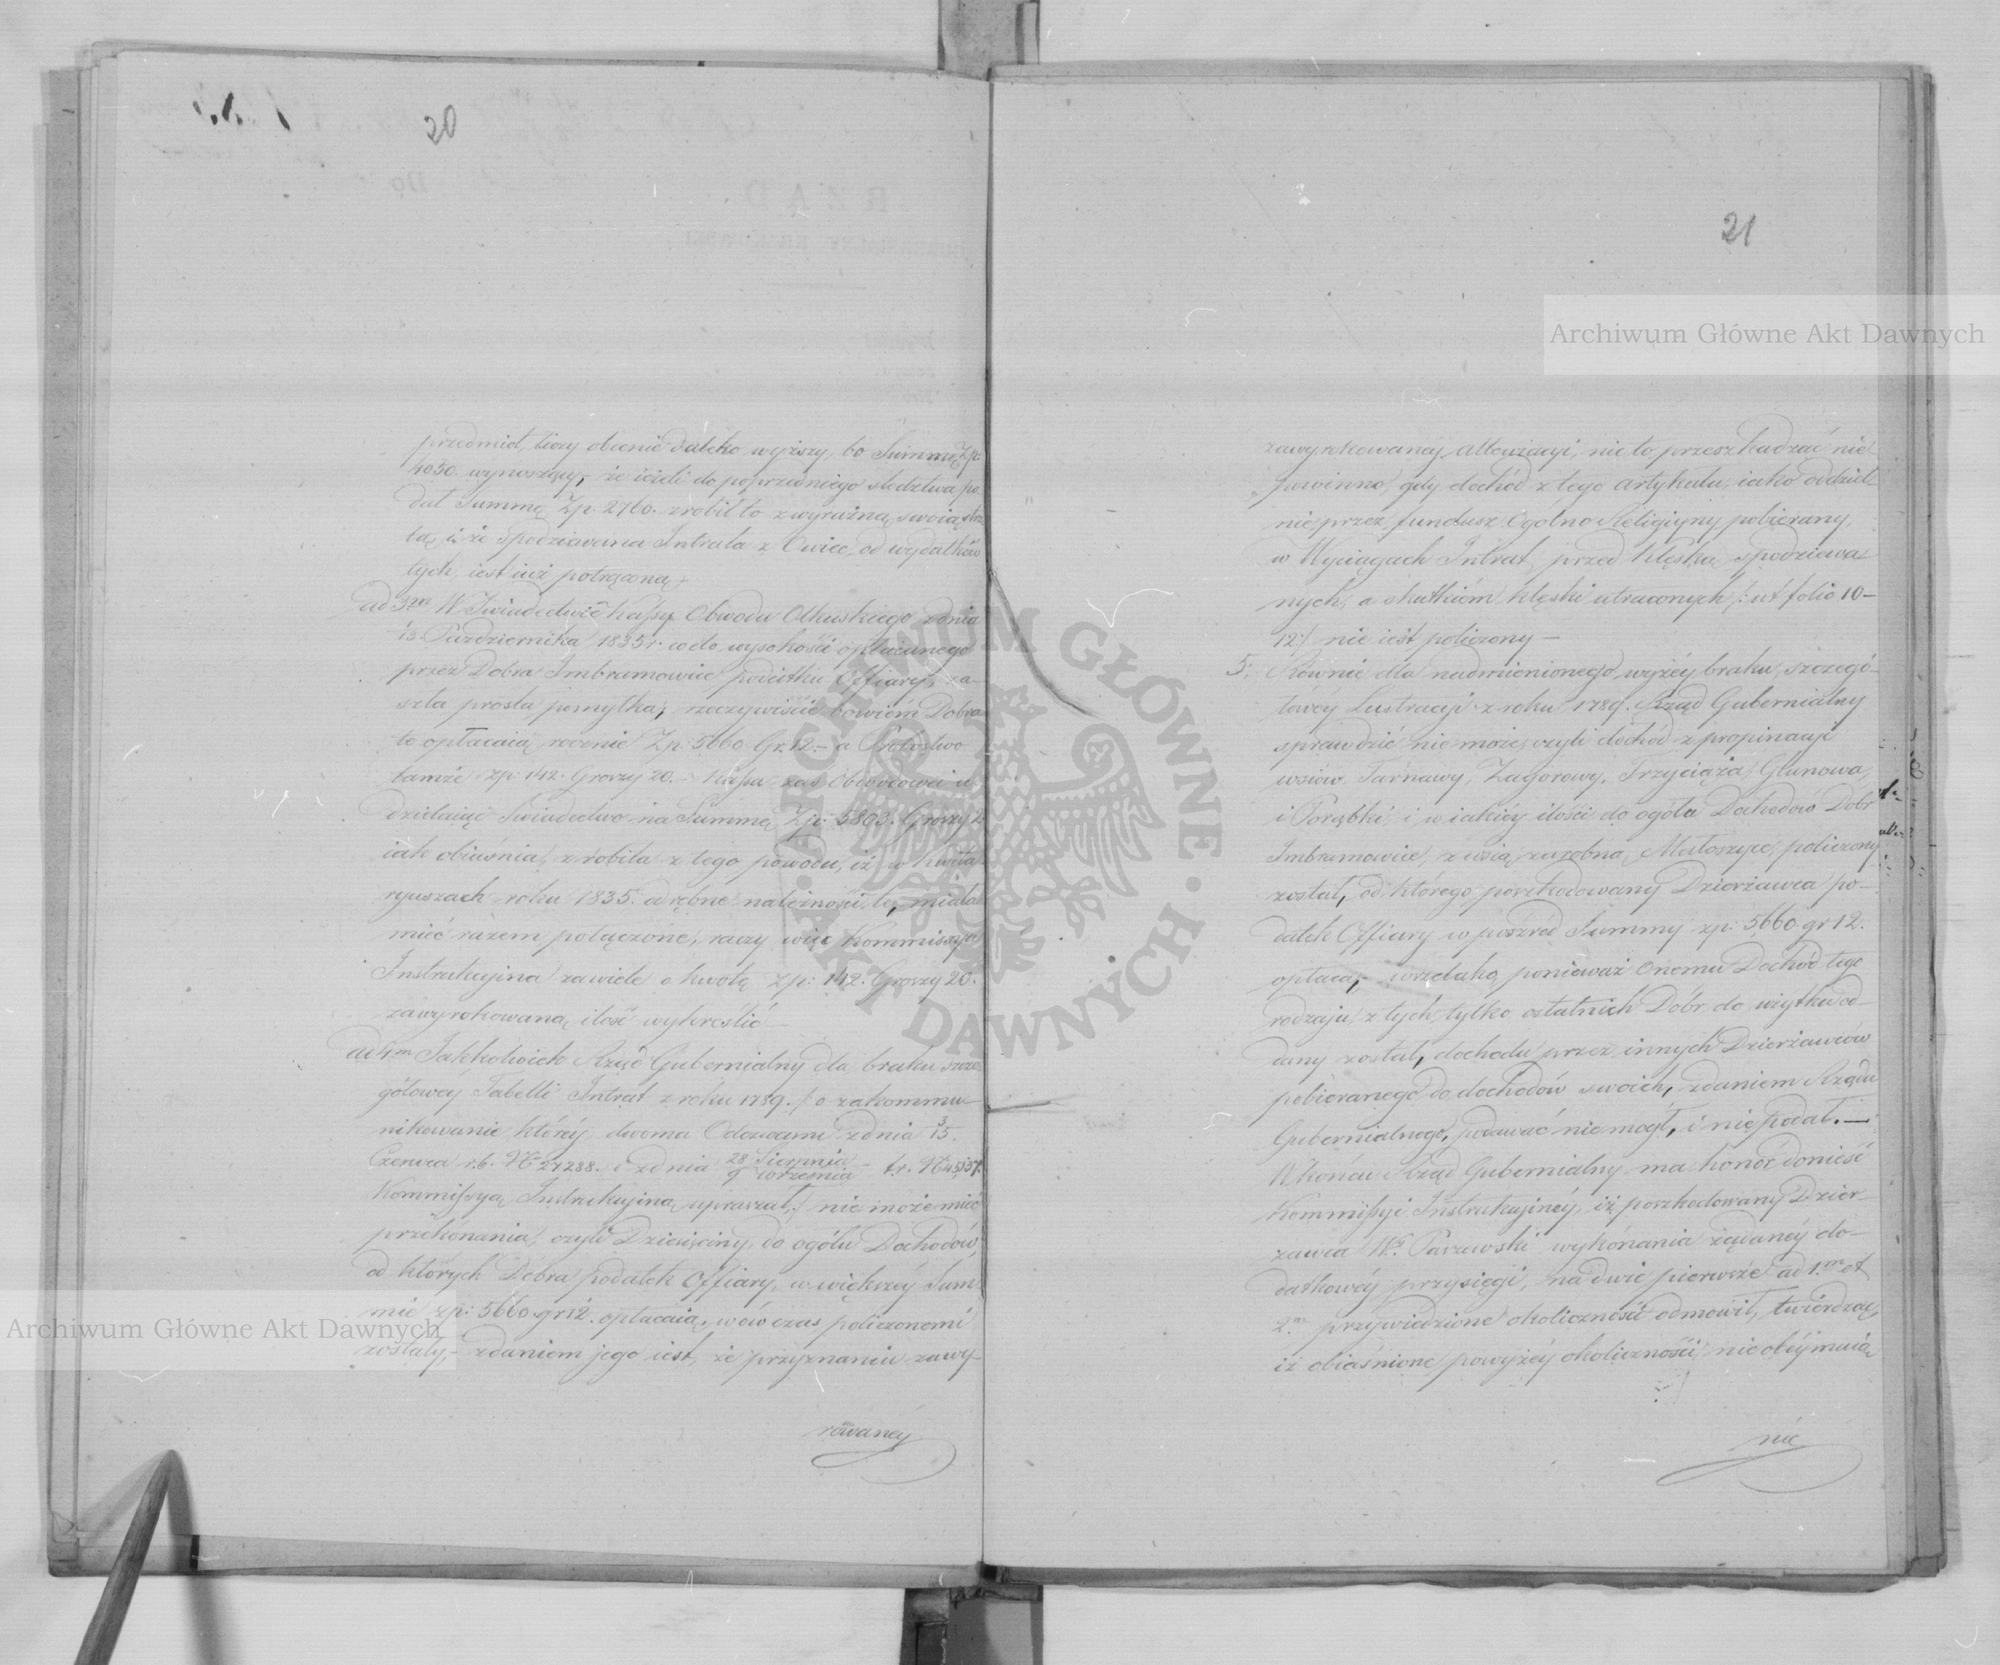 20
przedmiot, liczy obecnie daleko wyższy, bo Summę Zp:
4050 wynoszący, że ieżeli do poprzedniego śledztwa po-
dał Summę Zp. 2760. zrobił to z wyraźną swoią stra-
tą, i że spodziewana Intrata z Owiec, od wydatków
tych, iest iuż potrąconą,
ad 3m W Świadectwie Kassy Obwodu Olkuskiego z dnia
13. Października 1835 r. co do wysokości opłacanego
przez Dobra Imbramowice podatku Offiary, za-
szła prosta pomyłka, rzeczywiście bowiem Dobra
te opłacaią rocznie Zp: 5660 Gr. 12.– a Probostwo
tamże zp: 142. Groszy 20.– Kassa zaś Obwodowa u-
dzielaiąc Świadectwo na Summę Zp: 5803. Groszy 2
iak obiaśnia, zrobiła z tego powodu, iż w Kwita-
ryuszach roku 1835. odrębne należności te, miała
mieć razem połączone, raczy więc Kommissya
Instrukcyjna za wiele o kwotę Zp: 142. Groszy 20.
zawyrokowaną ilość wykreślić
ad 4m Jakkolwiek Rząd Gubernialny dla braku szcze-
gółowey Tabelli Intrat z roku 1789. /: o zakommu-
nikowanie któréy, dwoma Odezwami z dnia 3/15.
Czerwca r. b. No 27288. i z dnia 28 Sierpnia / 9 Września t. r. No 45537.
Kommissyą Instrukcyiną upraszał, :/ nie może mieć
przekonania, czyli Dziesięciny, do ogółu Dochodów,
od których Dobra podatek Offiary, w większey Sum-
mie zp: 5660. gr 12. opłacaią, wówczas policzonemi
zostały,– zdaniem jego iest, że przyznaniu zawy-
rowanéy
21
zawyrokowanej Allewiacyi, nic to przeszkadzać nie
powinno, gdy dochód z tego artykułu, iako oddziel-
nie przez fundusz Ogólno Religiyny pobierany,
w Wyciągach Intrat, przed klęską spodziewa-
nych, a skutkiem klęski utraconych /: ut folio 10–
12 :/ nie iest policzony –
5. Równie dla nadmienionego wyżéy braku szczegó-
łowéy Lustracji z roku 1789. Rząd Gubernialny
sprawdzić nie może, czyli dochód z propinacji
wsiów Tarnawy, Zagorowy, Trzyciąża, Glanowa,
i Porąbki, i w iakiéy ilości do ogółu Dochodów Dobr
Imbramowice, z wsią zarobną Małoszyce, policzony
został, od którego poszkodowany Dzierżawca po-
datek Offiary w pośród Summy zp: 5660. gr 12.
opłaca,– wszelako, ponieważ onemu Dochód tego
rodzaju, z tych tylko ostatnich Dóbr do użytku od-
dany został, dochodu przez innych Dzierżawców
pobieranego do dochodów swoich, zdaniem Rządu
Gubernialnego, podawać nie mógł, i nie podał.–
W końcu Rząd Gubernialny ma honor donieść
Kommissyi Instrukcyjnéy, iż poszkodowany Dzier-
żawca Wy. Parzewski wykonania żądanéy do-
datkowéy przysięgi, na dwie pierwsze ad 1.m et
2.m przywiedzione okoliczności odmówił, twierdząc,
iż obiaśnione powyżéy okoliczności, nie obéymuią
nic
Archiwum Główne Akt Dawnych
Archiwum Główne Akt Dawnych
ARCHIWUM GŁÓWNE AKT DAWNYCH